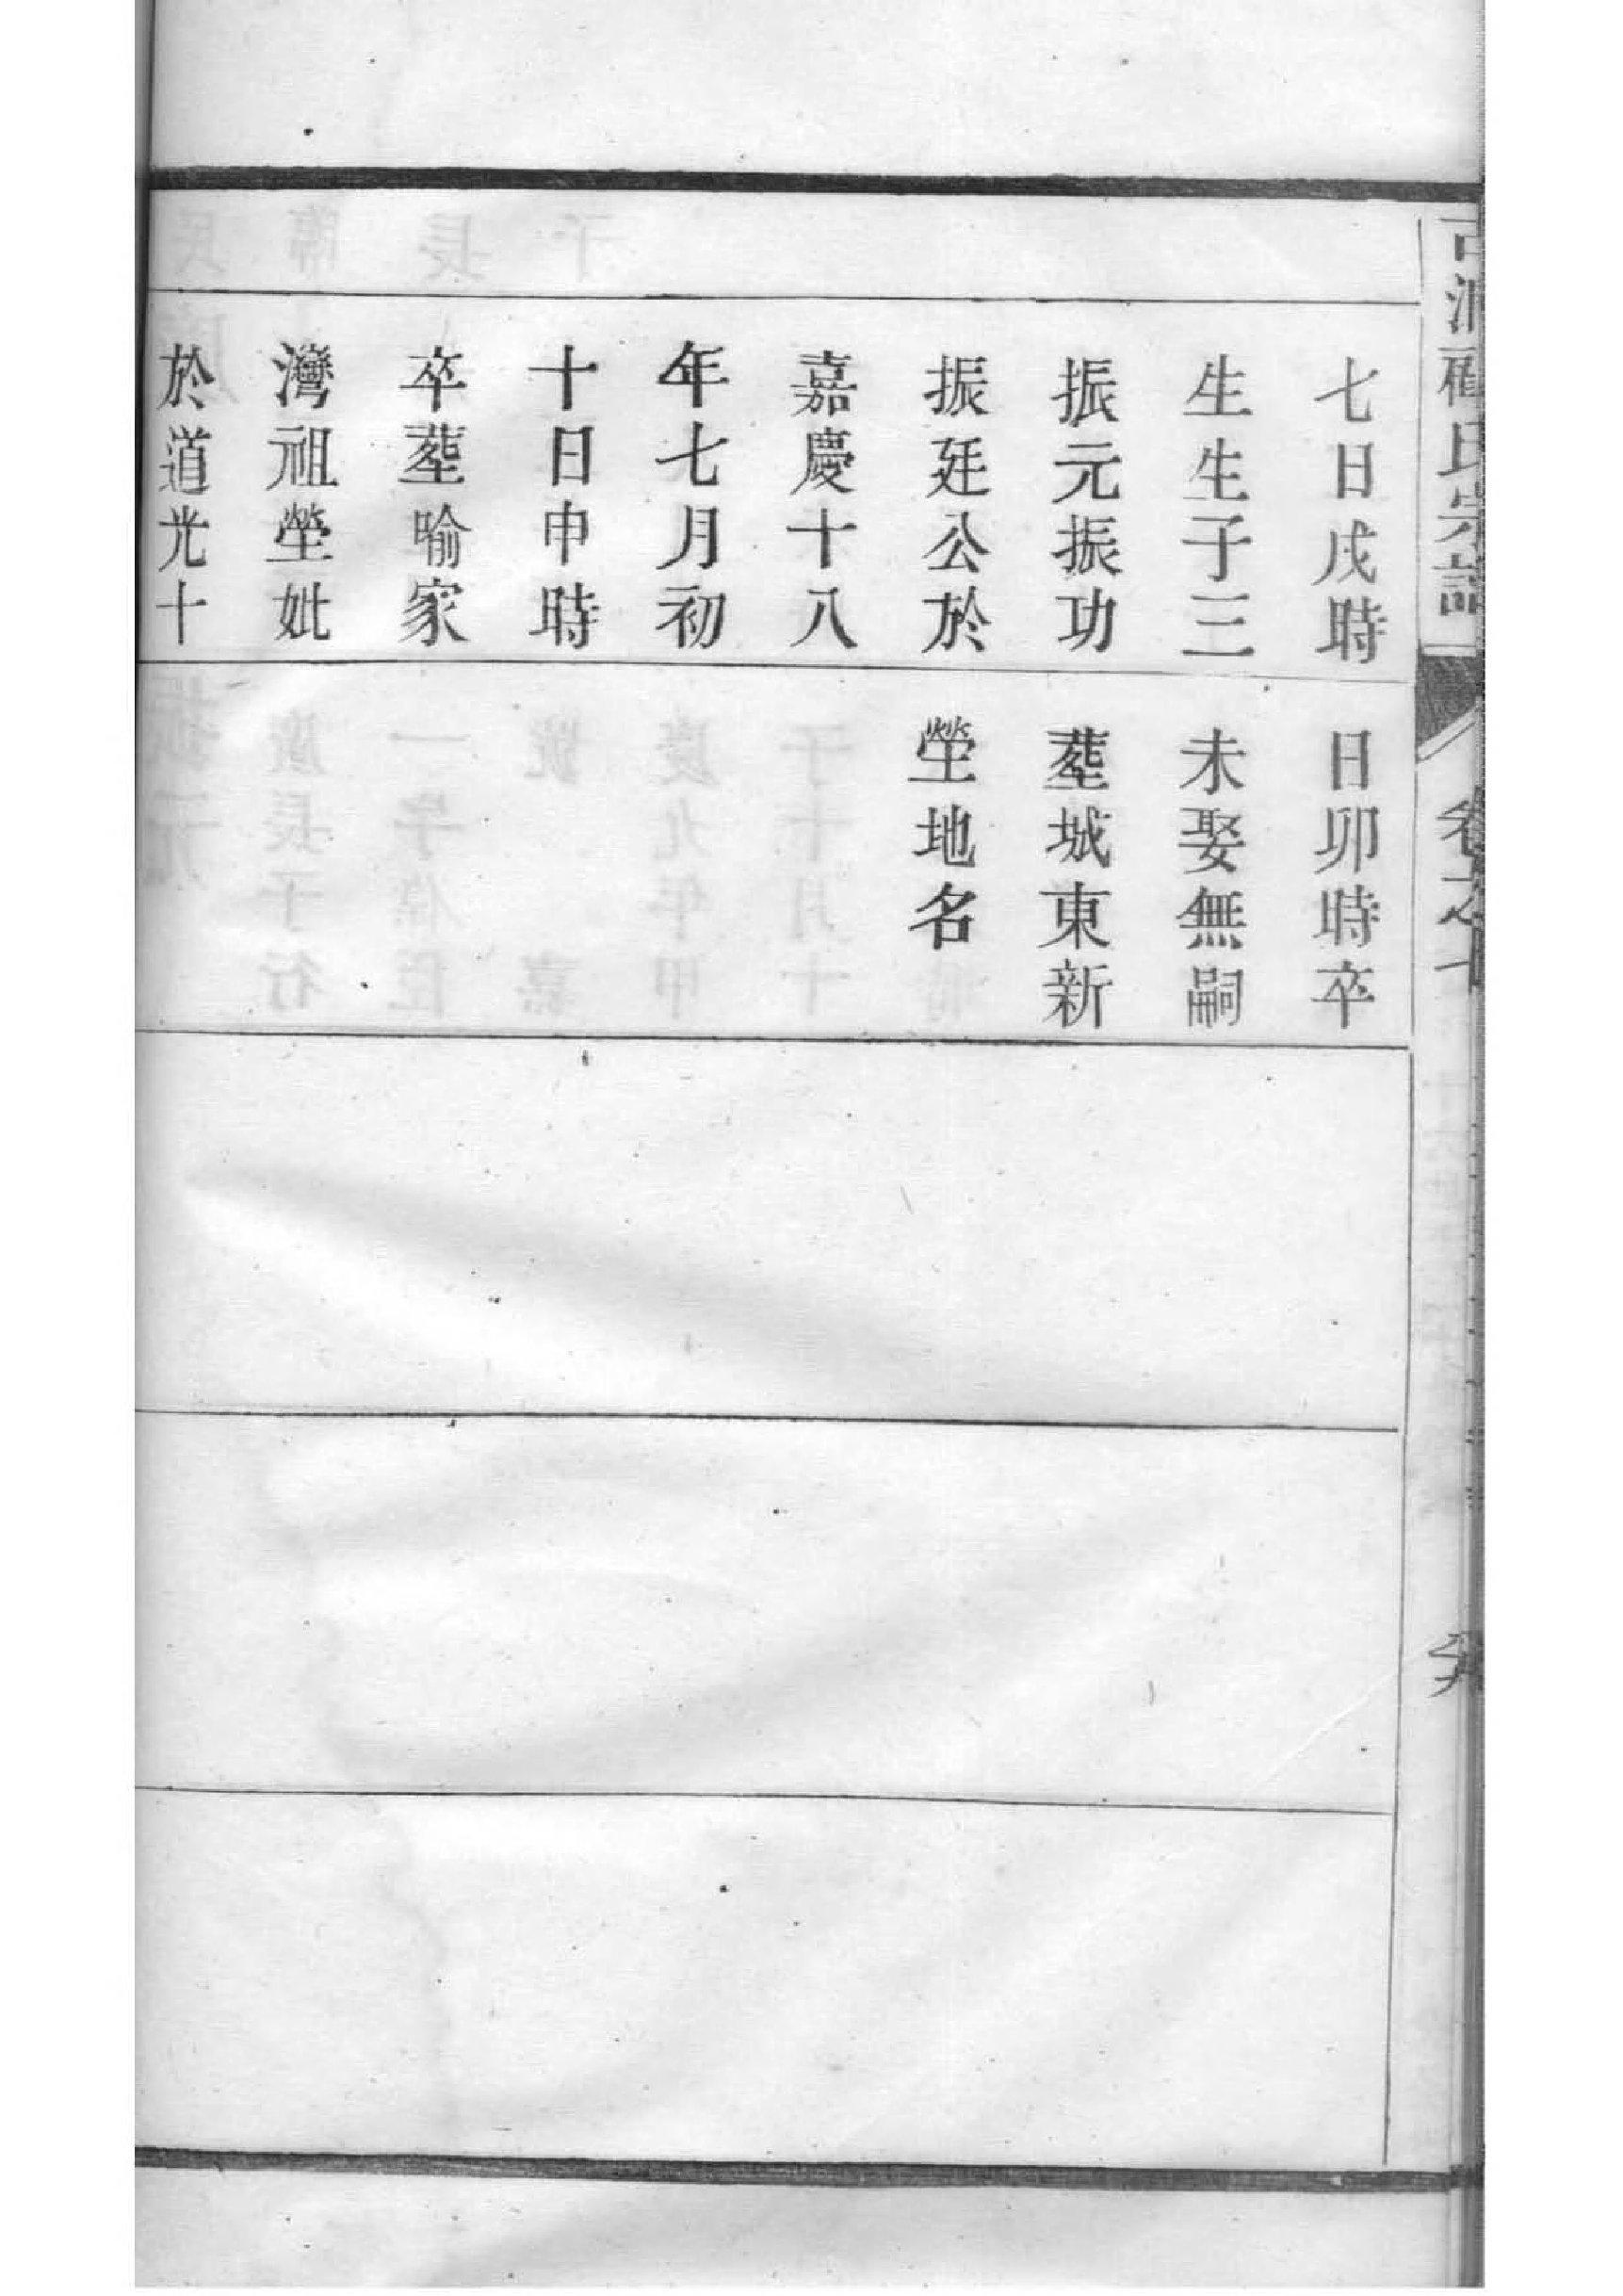 七日戌時
生生子三
振元振功
振廷公於
嘉慶十八
年七月初
十日申時
卒塟喻家
灣祖塋妣
於道光十
日卯時卒
未娶無嗣
塟城東新
塋地名
氏宗譜
卷之